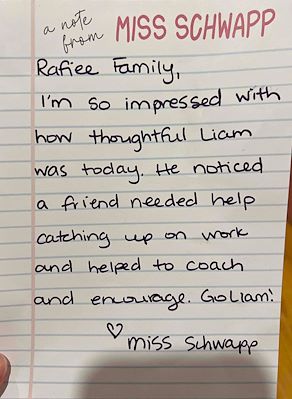 a note
from MISS SCHWAPP
Rafiee Family,
I'm so impressed with
how thoughtful Liam
was today. He noticed
a friend needed help
catching up on work
and helped to coach
and encourage. Go Liam!
♡ Miss Schwapp